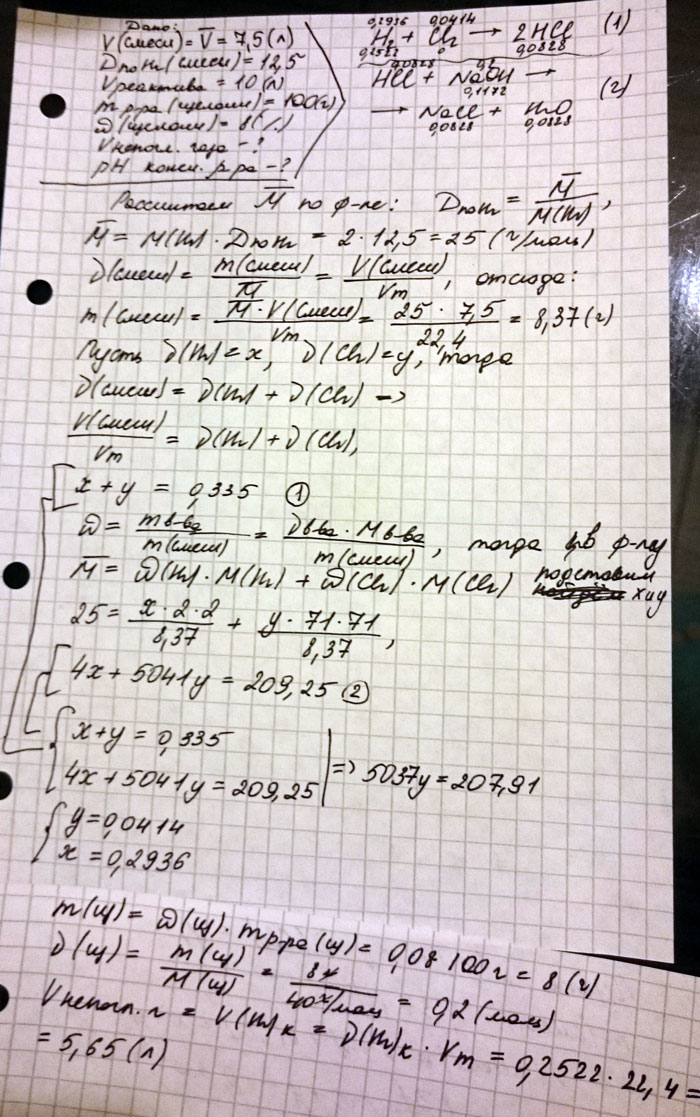 Дано:
V(смеси) = V̅ = 7,5 (л)
D по H₂ (смеси) = 12,5
V реактива = 10 (л)
m р-ра (щелочи) = 100(г)
ω (щелочи) = 8(%)
V непогл. газа - ?
pH конеч. р-ра - ?
0,2936 0,0414
H₂ + Cl₂ → 2HCl (1)
0,2522 0 0,0828
0,0828 0,2
HCl + NaOH →
0,1172
→ NaCl + H₂O (2)
0,0828 0,0828
Рассчитаем M̅ по ф-ле: D по H₂ = M̅ / M(H₂),
M̅ = M(H₂) · D по H₂ = 2 · 12,5 = 25 (г/моль)
ν(смеси) = m(смеси) / M̅ = V(смеси) / Vm, отсюда:
m(смеси) = M̅ · V(смеси) / Vm = 25 · 7,5 / 22,4 = 8,37 (г)
Пусть ν(H₂) = x, ν(Cl₂) = y, тогда
ν(смеси) = ν(H₂) + ν(Cl₂) =>
V(смеси) / Vm = ν(H₂) + ν(Cl₂),
x + y = 0,335 ①
ω = m в-ва / m(смеси) = ν в-ва · M в-ва / m(смеси), тогда в ф-лу
M̅ = ω(H₂) · M(H₂) + ω(Cl₂) · M(Cl₂) подставим x и y
25 = x · 2 · 2 / 8,37 + y · 71 · 71 / 8,37,
4x + 5041y = 209,25 ②
x + y = 0,335
4x + 5041y = 209,25 => 5037y = 207,91
y = 0,0414
x = 0,2936
m(щ) = ω(щ) · m р-ра (щ) = 0,08 · 100г = 8 (г)
ν(щ) = m(щ) / M(щ) = 8г / 40г/моль = 0,2 (моль)
V непогл. г = V(H₂)к = ν(H₂)к · Vm = 0,2522 · 22,4 =
= 5,65 (л)